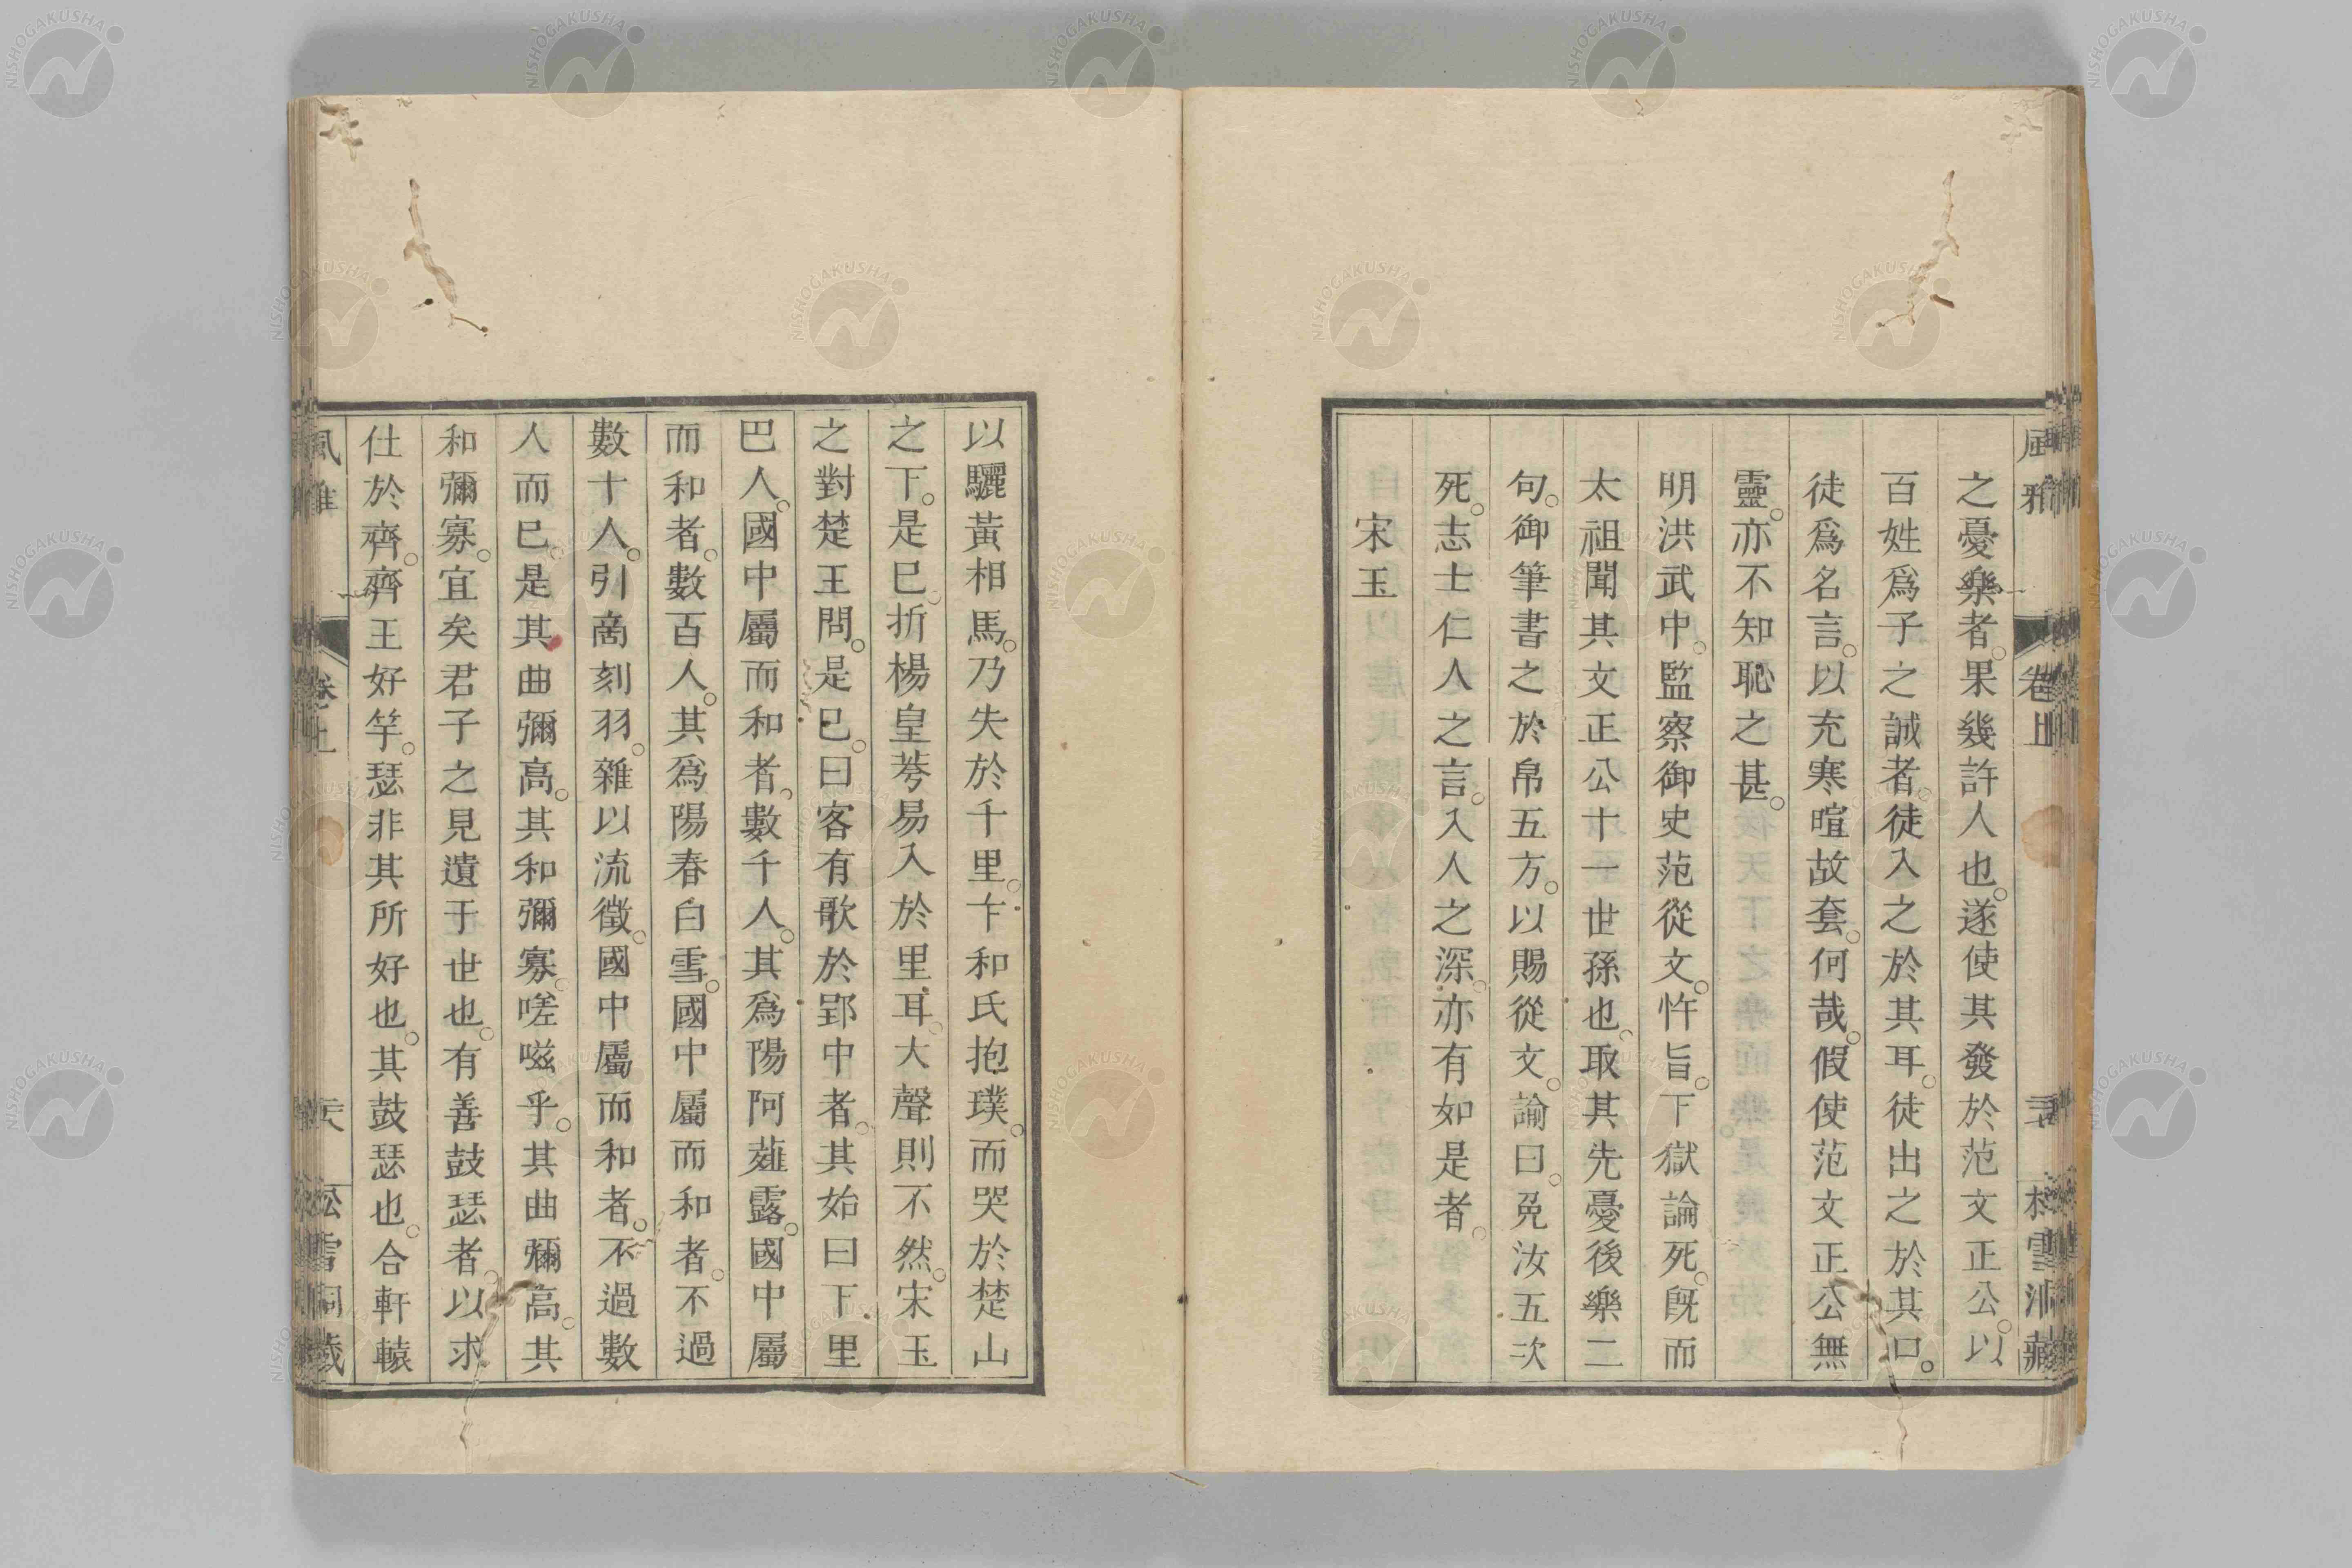 之憂樂者。果幾許人也。遂使其發於范文正公。以
百姓爲子之誠者。徒入之於其耳。徒出之於其口。
徒爲名言。以充寒暄故套。何哉。假使范文正公無
靈。亦不知恥之甚。
明洪武中。監察御史范從文。忤旨。下獄論死。旣而
太祖聞其文正公十一世孫也。取其先憂後樂二
句。御筆書之於帛五方。以賜從文。諭曰。免汝五次
死。志士仁人之言。入人之深。亦有如是者。
宋玉
以驪黃相馬。乃失於千里。卞和氏抱璞。而哭於楚山
之下。是巳。折楊皇荂易入於里耳。大聲則不然。宋玉
之對楚王問。是巳。曰客有歌於郢中者。其始曰下里
巴人。國中屬而和者。數千人。其爲陽阿薤露。國中屬
而和者。數百人。其爲陽春白雪。國中屬而和者。不過
數十人。引商刻羽。雜以流徵。國中屬而和者。不過數
人而巳。是其曲彌高。其和彌寡。嗟嗞乎。其曲彌高。其
和彌寡。宜矣君子之見遺于世也。有善鼓瑟者。以求
仕於齊。齊王好竽。瑟非其所好也。其鼓瑟也。合軒轅
風雅
卷上
NISHOGAKUSHA